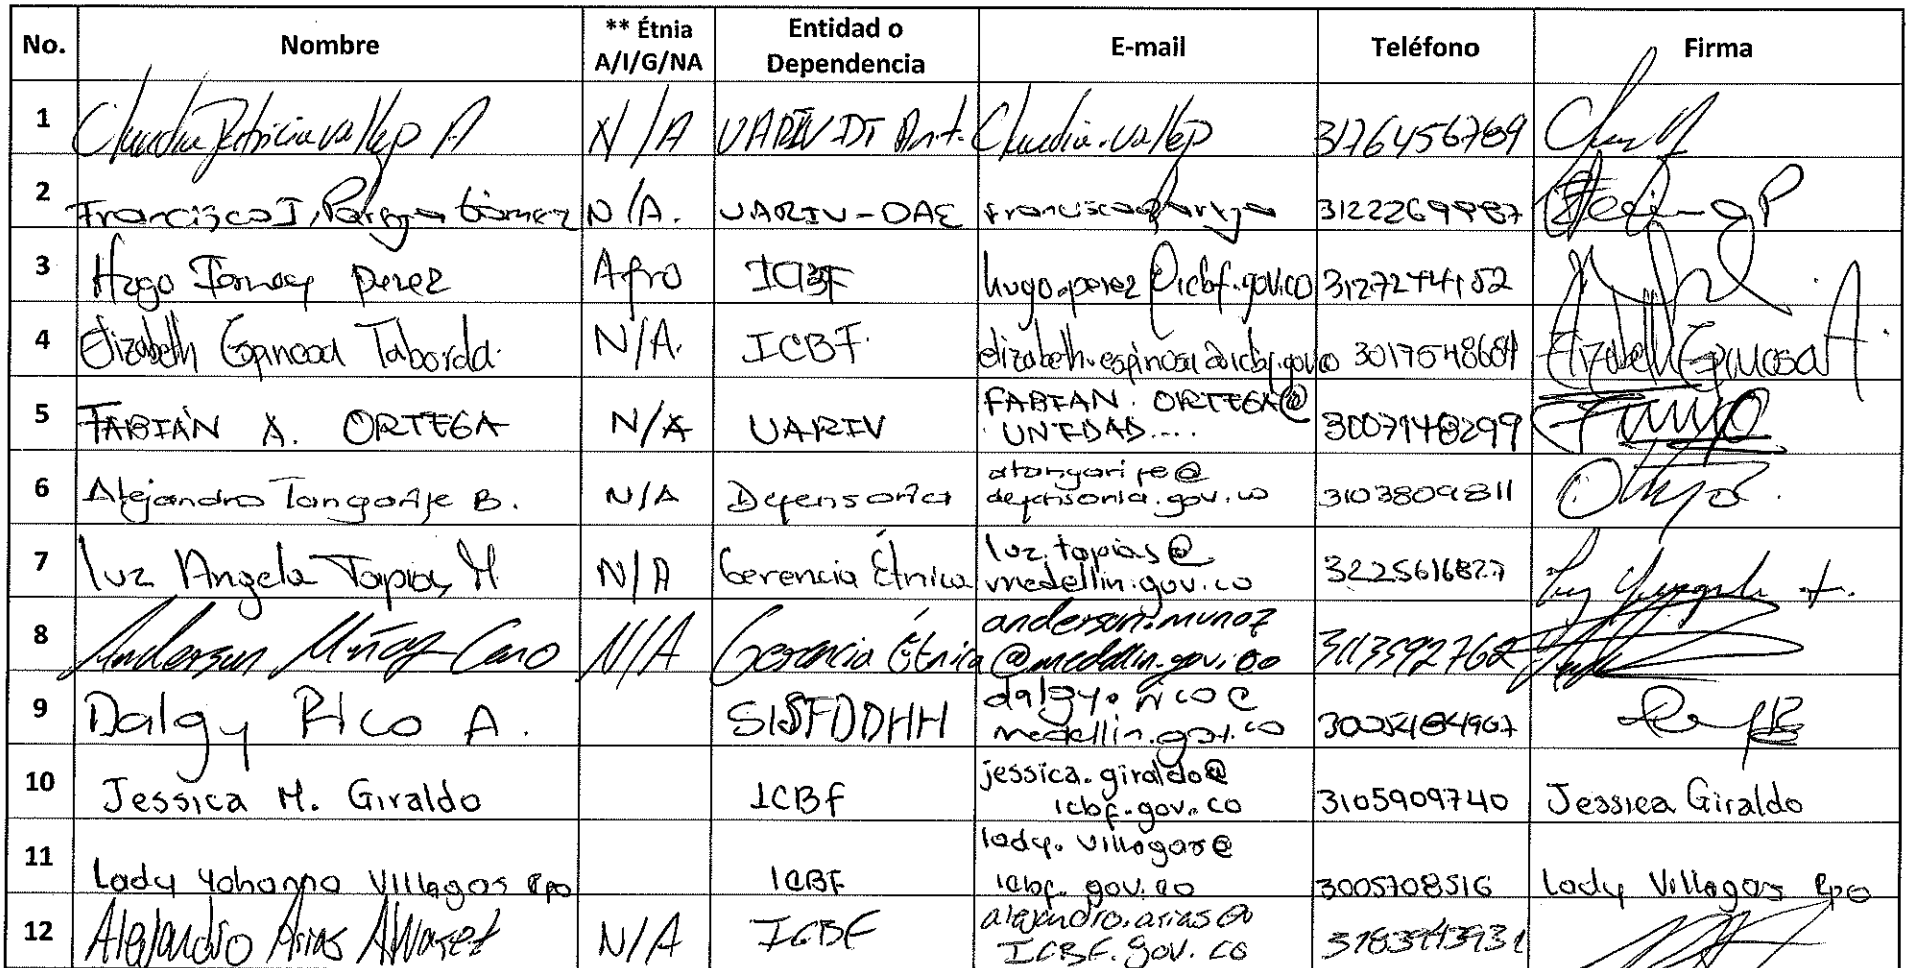 No. Nombre ** Étnia A/I/G/NA Entidad o Dependencia E-mail Teléfono Firma
1 Claudia Patricia Vallejo A N/A UARIV DT Ant. Claudia.vallejo 3176456789
2 Francisco J. Pareja Gómez N/A. UARIV-DAE franciscopareja 3122269987
3 Hugo Perez Afro ICBF hugo.perez@icbf.gov.co 3127274152
4 Elizabeth Espinosa Taborda. N/A. ICBF. elizabeth.espinosa@icbf.gov.co 3017548684 Elizabeth Espinosa
5 FABIÁN A. ORTEGA N/A UARIV FABIAN.ORTEGA@ UNIDAD.... 3007148299
6 Alejandro Tangarife B. N/A Defensoría atangarife@ defensoria.gov.co 3103809811
7 luz Angela Tapias M N/A Gerencia Étnica luz.tapias@ medellin.gov.co 3225616827
8 Anderson Muñoz Cano N/A Gerencia Étnica anderson.munoz @medellin.gov.co 3113592762
9 Dalgy Rico A. SISFDDHH dalgy.rico@ medellin.gov.co
10 Jessica M. Giraldo ICBF jessica.giraldo@ icbf.gov.co 3105909740 Jessica Giraldo
11 Lady Yohanna Villegas Rpo ICBF lady.villegas@ icbf.gov.co 3005708516 Lady Villegas Rpo
12 Alejandro Arias Alvarez N/A ICBF alejandro.arias@ ICBF.gov.co